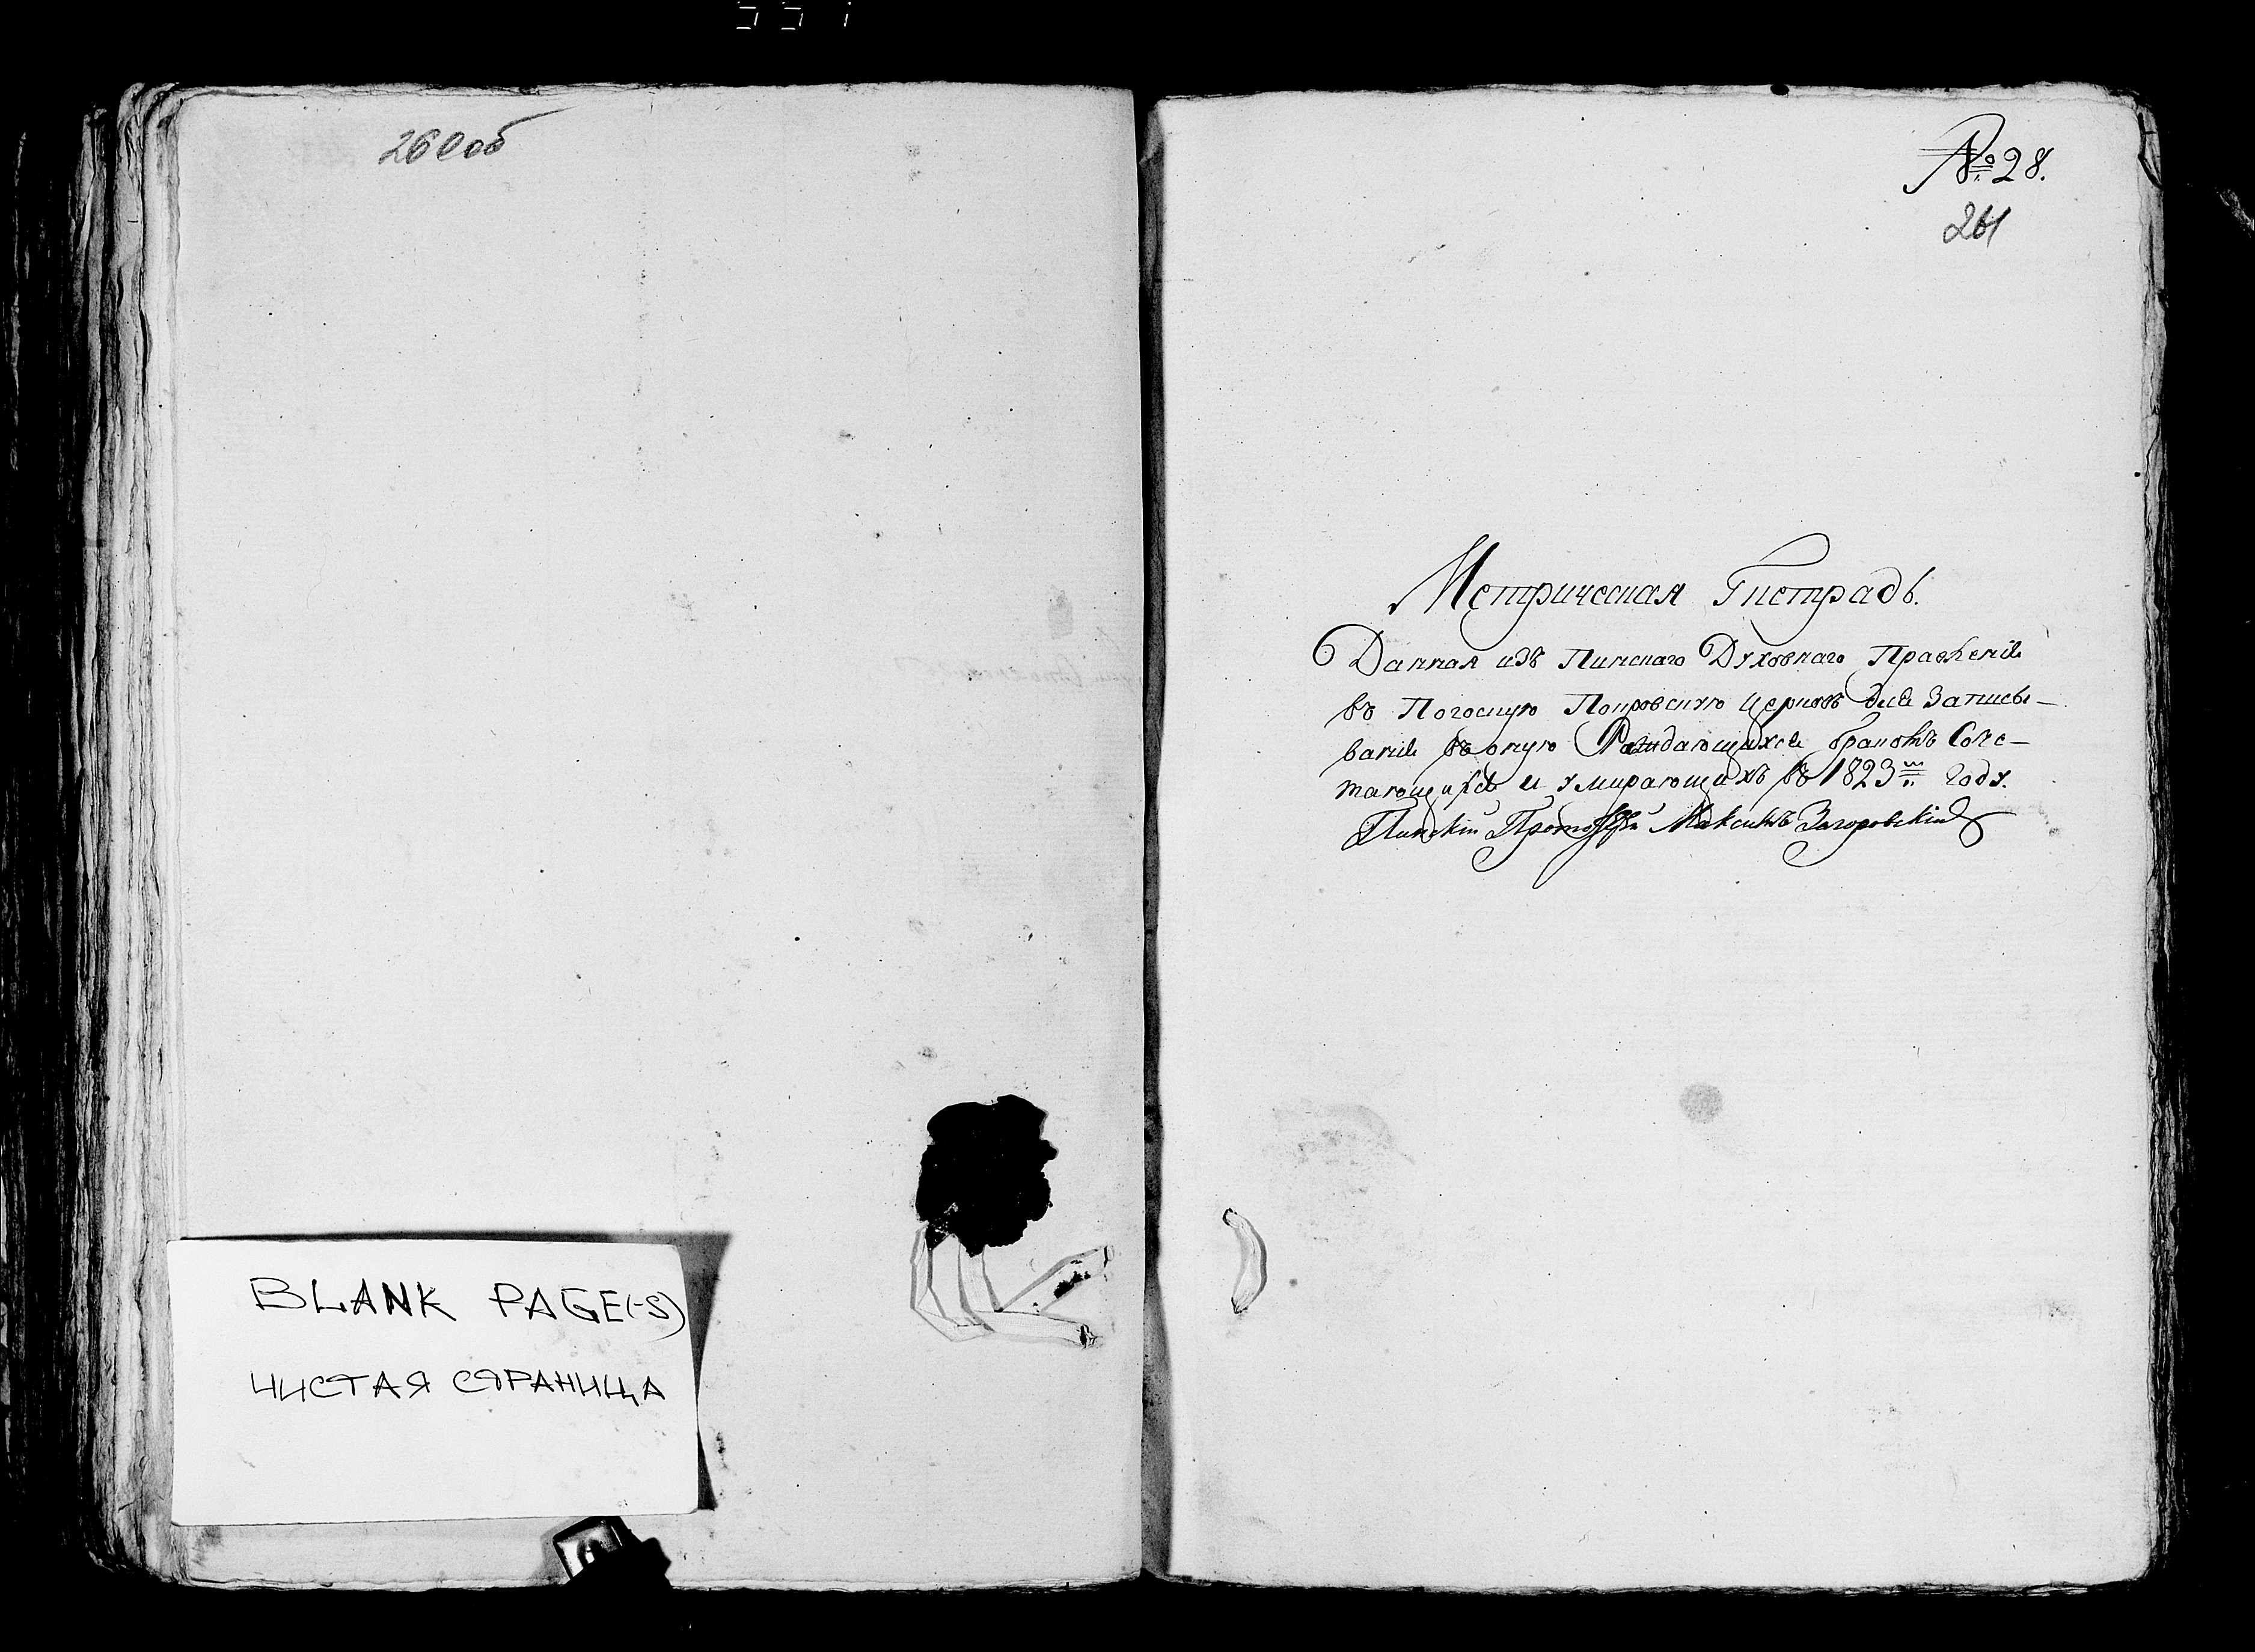 260об
BLANK PAGE(-S)
ЧИСТАЯ СТРАНИЦА
№ 28.
261
Метрическая Тистрадь.
Данная изъ Пинскаго Духовнаго Правленія
въ Погоскую Покровскую церковь для Записы-
ванія въ оную Раждающихся бракомъ Соче-
тающихся и умирающихъ въ 1823 м году.
Пинскій Максимъ Загоровскій